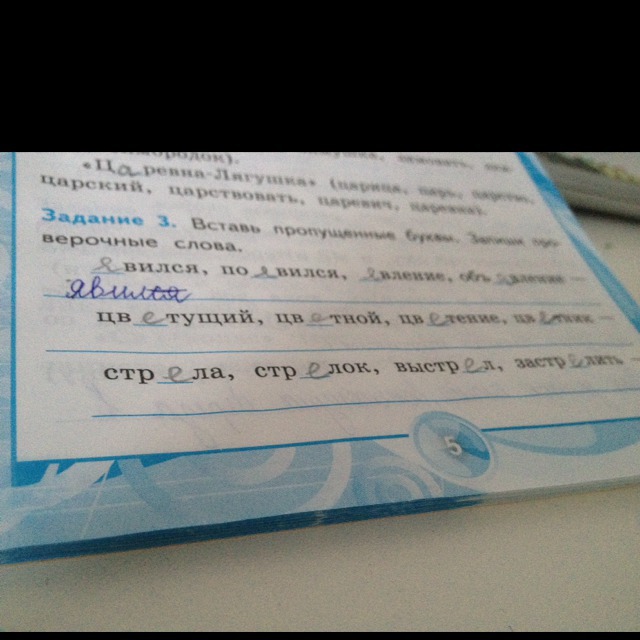 «Царевна-Лягушка» (царица, царь, царство,
царский, царствовать, царевич, царевна).
Задание 3. Вставь пропущенные буквы. Запиши про-
верочные слова.
явился, появился, явление, объявление —
явился
цветущий, цветной, цветение, цветник —
стрела, стрелок, выстрел, застрелить —
5